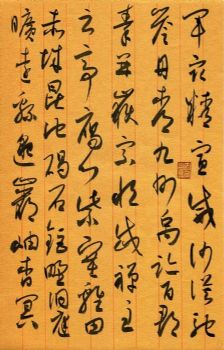 軍最精宣威沙漠馳
譽丹青九州禹跡百郡
秦并嶽宗恒岱禪主
云亭雁門紫塞雞田
赤城昆池碣石鉅野洞庭
曠遠綿邈巖岫杳冥